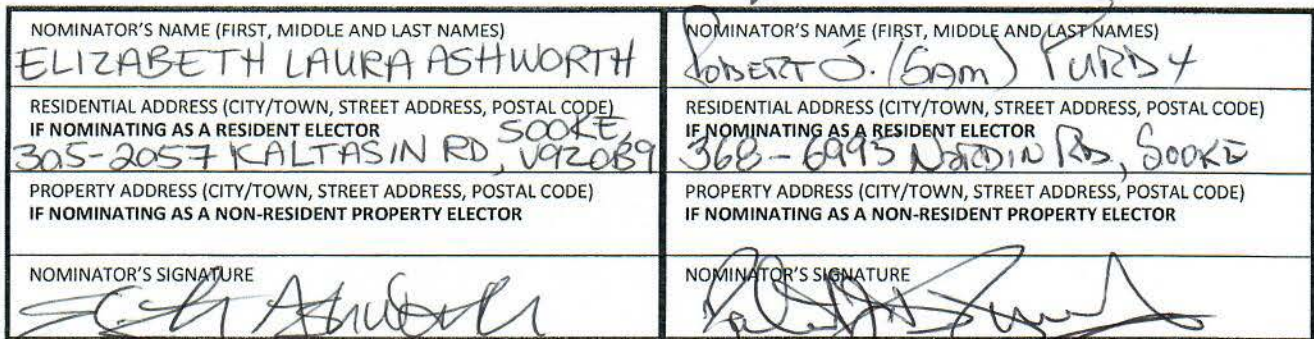 NOMINATOR'S NAME (FIRST, MIDDLE AND LAST NAMES)
ELIZABETH LAURA ASHWORTH
RESIDENTIAL ADDRESS (CITY/TOWN, STREET ADDRESS, POSTAL CODE)
IF NOMINATING AS A RESIDENT ELECTOR
SOOKE,
305-2057 KALTASIN RD, V9Z0B9
PROPERTY ADDRESS (CITY/TOWN, STREET ADDRESS, POSTAL CODE)
IF NOMINATING AS A NON-RESIDENT PROPERTY ELECTOR
NOMINATOR'S SIGNATURE
Ashworth
NOMINATOR'S NAME (FIRST, MIDDLE AND LAST NAMES)
ROBERT J. (SAM) PURDY
RESIDENTIAL ADDRESS (CITY/TOWN, STREET ADDRESS, POSTAL CODE)
IF NOMINATING AS A RESIDENT ELECTOR
368-6995 NORDIN RD, SOOKE
PROPERTY ADDRESS (CITY/TOWN, STREET ADDRESS, POSTAL CODE)
IF NOMINATING AS A NON-RESIDENT PROPERTY ELECTOR
NOMINATOR'S SIGNATURE